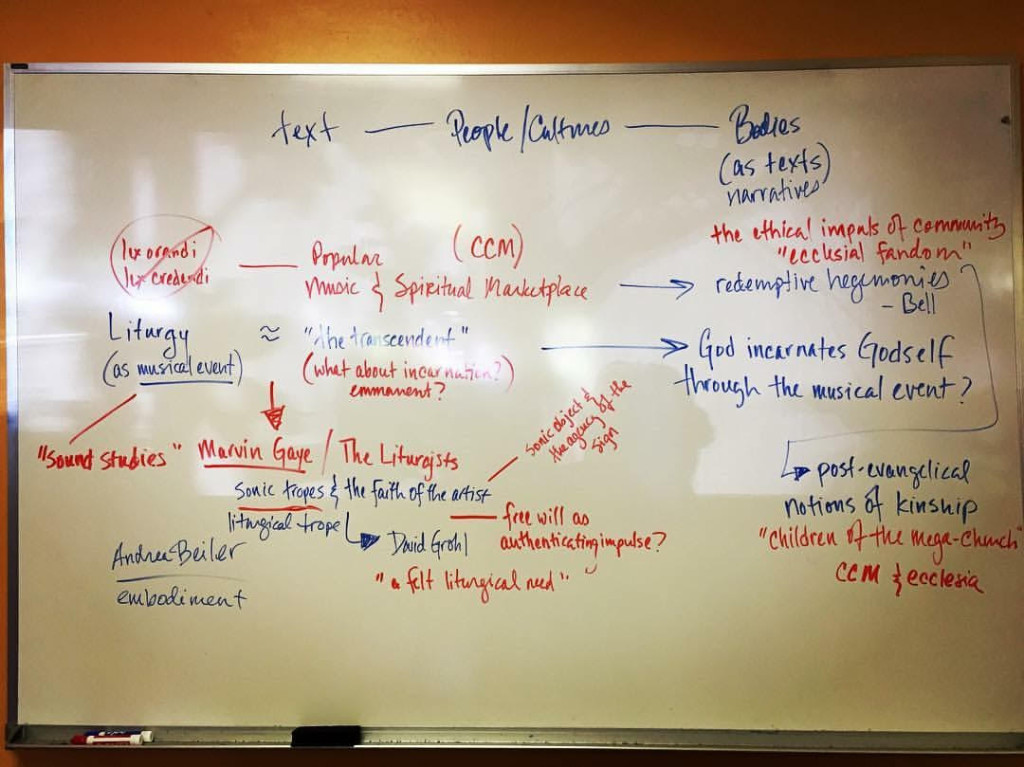 text — People/Cultures — Bodies
(as texts)
narratives
the ethical impuls of community
"ecclusial fandom"
lex orandi
lex credendi
Popular (CCM)
Music & Spiritual Marketplace
redemptive hegemonies
- Bell
Liturgy ≈ "the transcendent"
(as musical event)
(what about incarnation?)
emmanent?
God incarnates Godself
through the musical event?
"sound studies"
Marvin Gaye / The Liturgists
sonic object &
the agency of the
sign
sonic tropes & the faith of the artist
liturgical trope
David Grohl
free will as
authenticating impulse?
"a felt liturgical need"
Andrea Beiler
embodiment
post-evangelical
notions of kinship
"children of the mega-church"
CCM & ecclesia